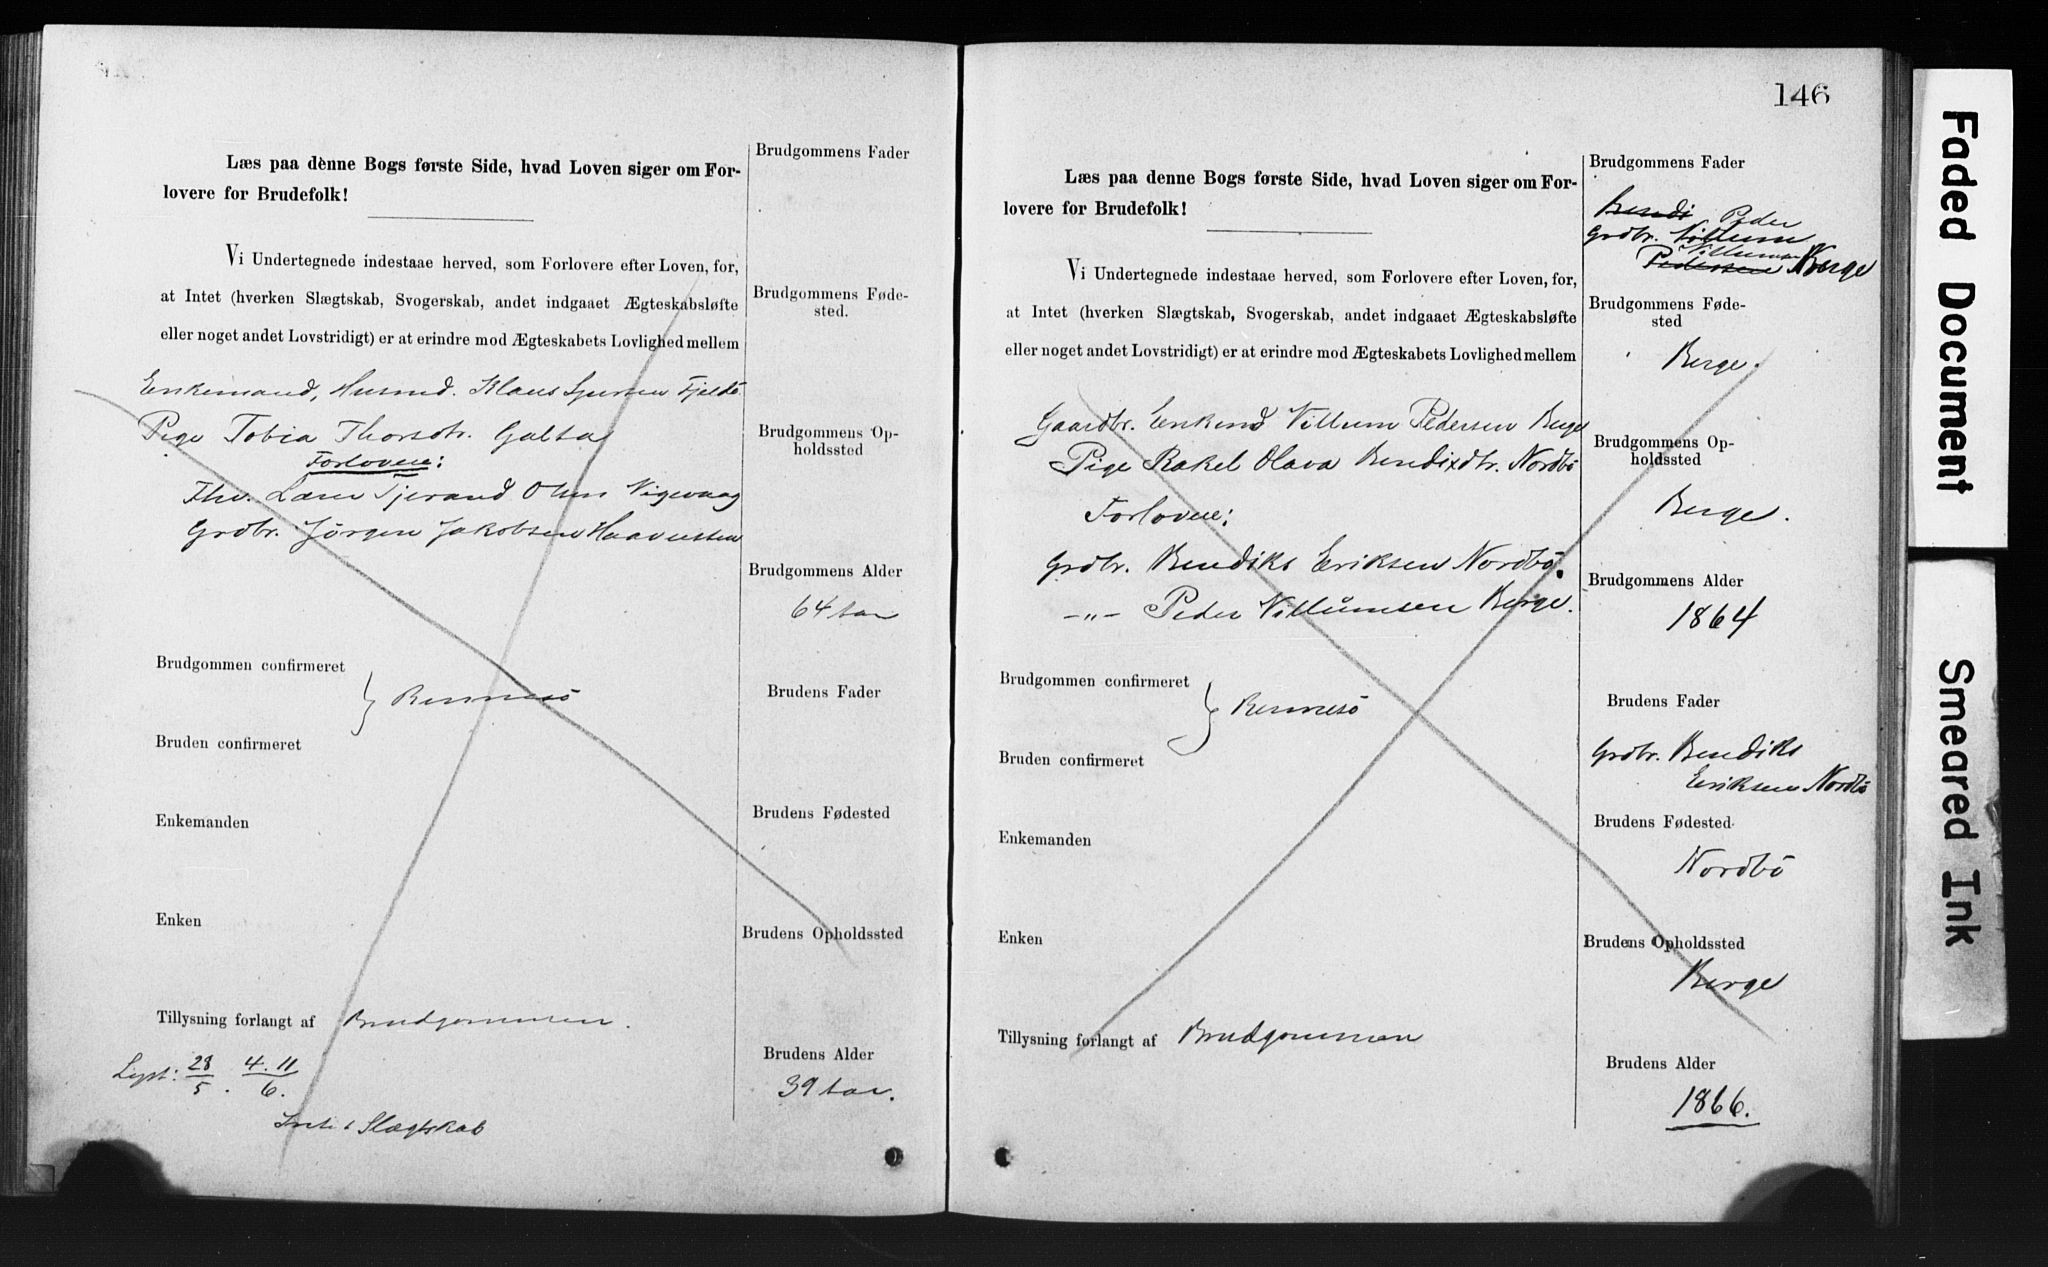 Læs paa denne Bogs første Side, hvad Loven siger om For-
lovere for Brudefolk!
Vi Undertegnede indestaae herved, som Forlovere efter Loven, for,
at Intet (hverken Slægtskab, Svogerskab, andet indgaaet Ægteskabsløfte
eller noget andet Lovstridigt) er at erindre mod Ægteskabets Lovlighed mellem
Enkemand, Husmd. Klaus
Pige Tobia Thorsdtr. Galta
Forlovere:
Tjerand Olsen Vigevaag
Grdbr. Jørgen Jakobsen
Brudgommen confirmeret
} Rennesö
Bruden confirmeret
Enkemanden
Enken
Tillysning forlangt af Brudgommen.
Lyst: 28/5. 4. 11/6.
Intet Slægtskab
Brudgommens Fader
Brudgommens Føde-
sted.
Brudgommens Op-
holdssted
Brudgommens Alder
64 aar
Brudens Fader
Brudens Fødested
Brudens Opholdssted
Brudens Alder
39 aar.
146
Læs paa denne Bogs første Side, hvad Loven siger om For-
lovere for Brudefolk!
Vi Undertegnede indestaae herved, som Forlovere efter Loven, for,
at Intet (hverken Slægtskab, Svogerskab, andet indgaaet Ægteskabsløfte
eller noget andet Lovstridigt) er at erindre mod Ægteskabets Lovlighed mellem
Gaardbr. Enkemd Villum Pedersen Berge
Pige Rakel Olava Bendixdtr. Nordbö
Forlovere:
Grdbr. Bendiks Eriksen Nordbö.
—„— Peder Villumsen Berge.
Brudgommen confirmeret
} Rennesö
Bruden confirmeret
Enkemanden
Enken
Tillysning forlangt af Brudgommen
Brudgommens Fader
Bendi Peder
Grdbr. Villum
Villumsen
Pedersen Berge
Brudgommens Føde-
sted
Berge.
Brudgommens Op-
holdssted
Berge.
Brudgommens Alder
1864
Brudens Fader
Grdbr. Bendiks
Eriksen Nordbö
Brudens Fødested
Nordbö
Brudens Opholdssted
Berge
Brudens Alder
1866.
Faded Document
Smeared Ink